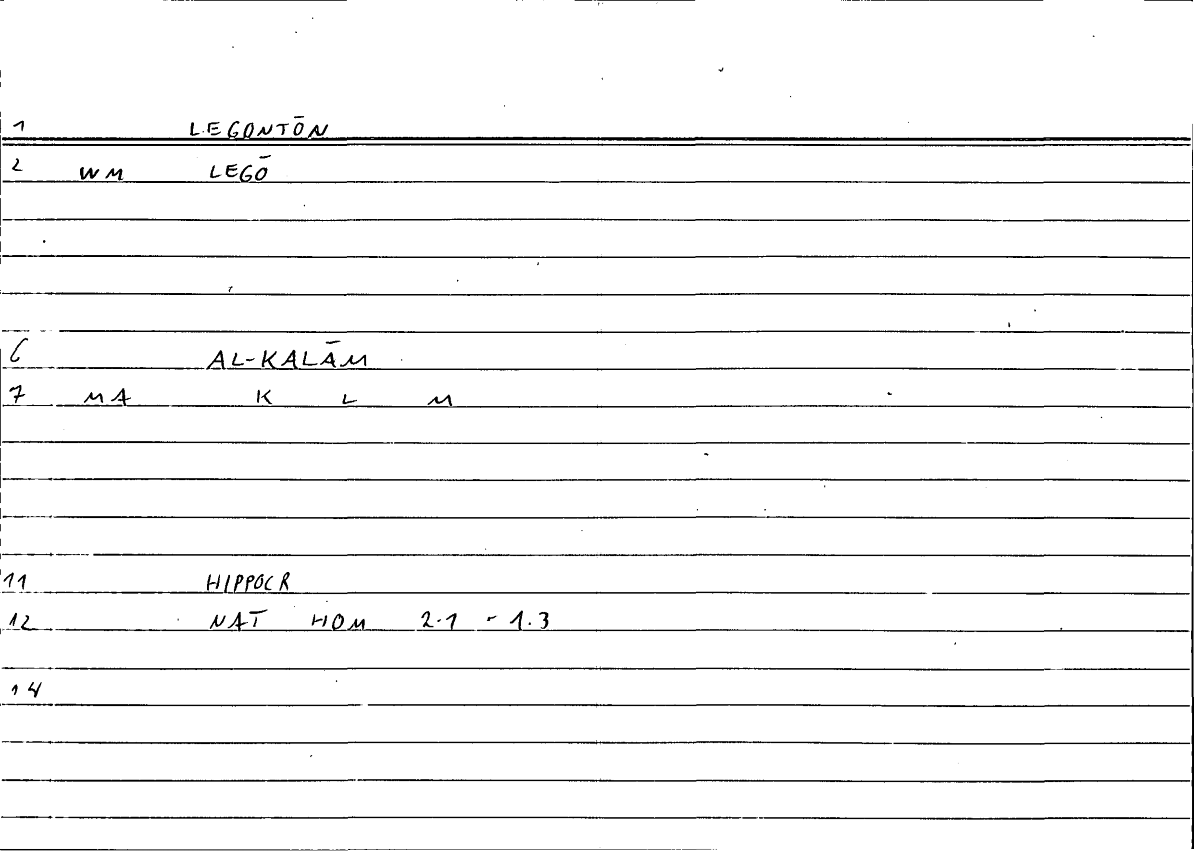 1 LEGONTŌN
2 WM LEGŌ
6 AL-KALĀM
7 MA K L M
11 HIPPOCR
12 NAT HOM 2.1 - 1.3
14